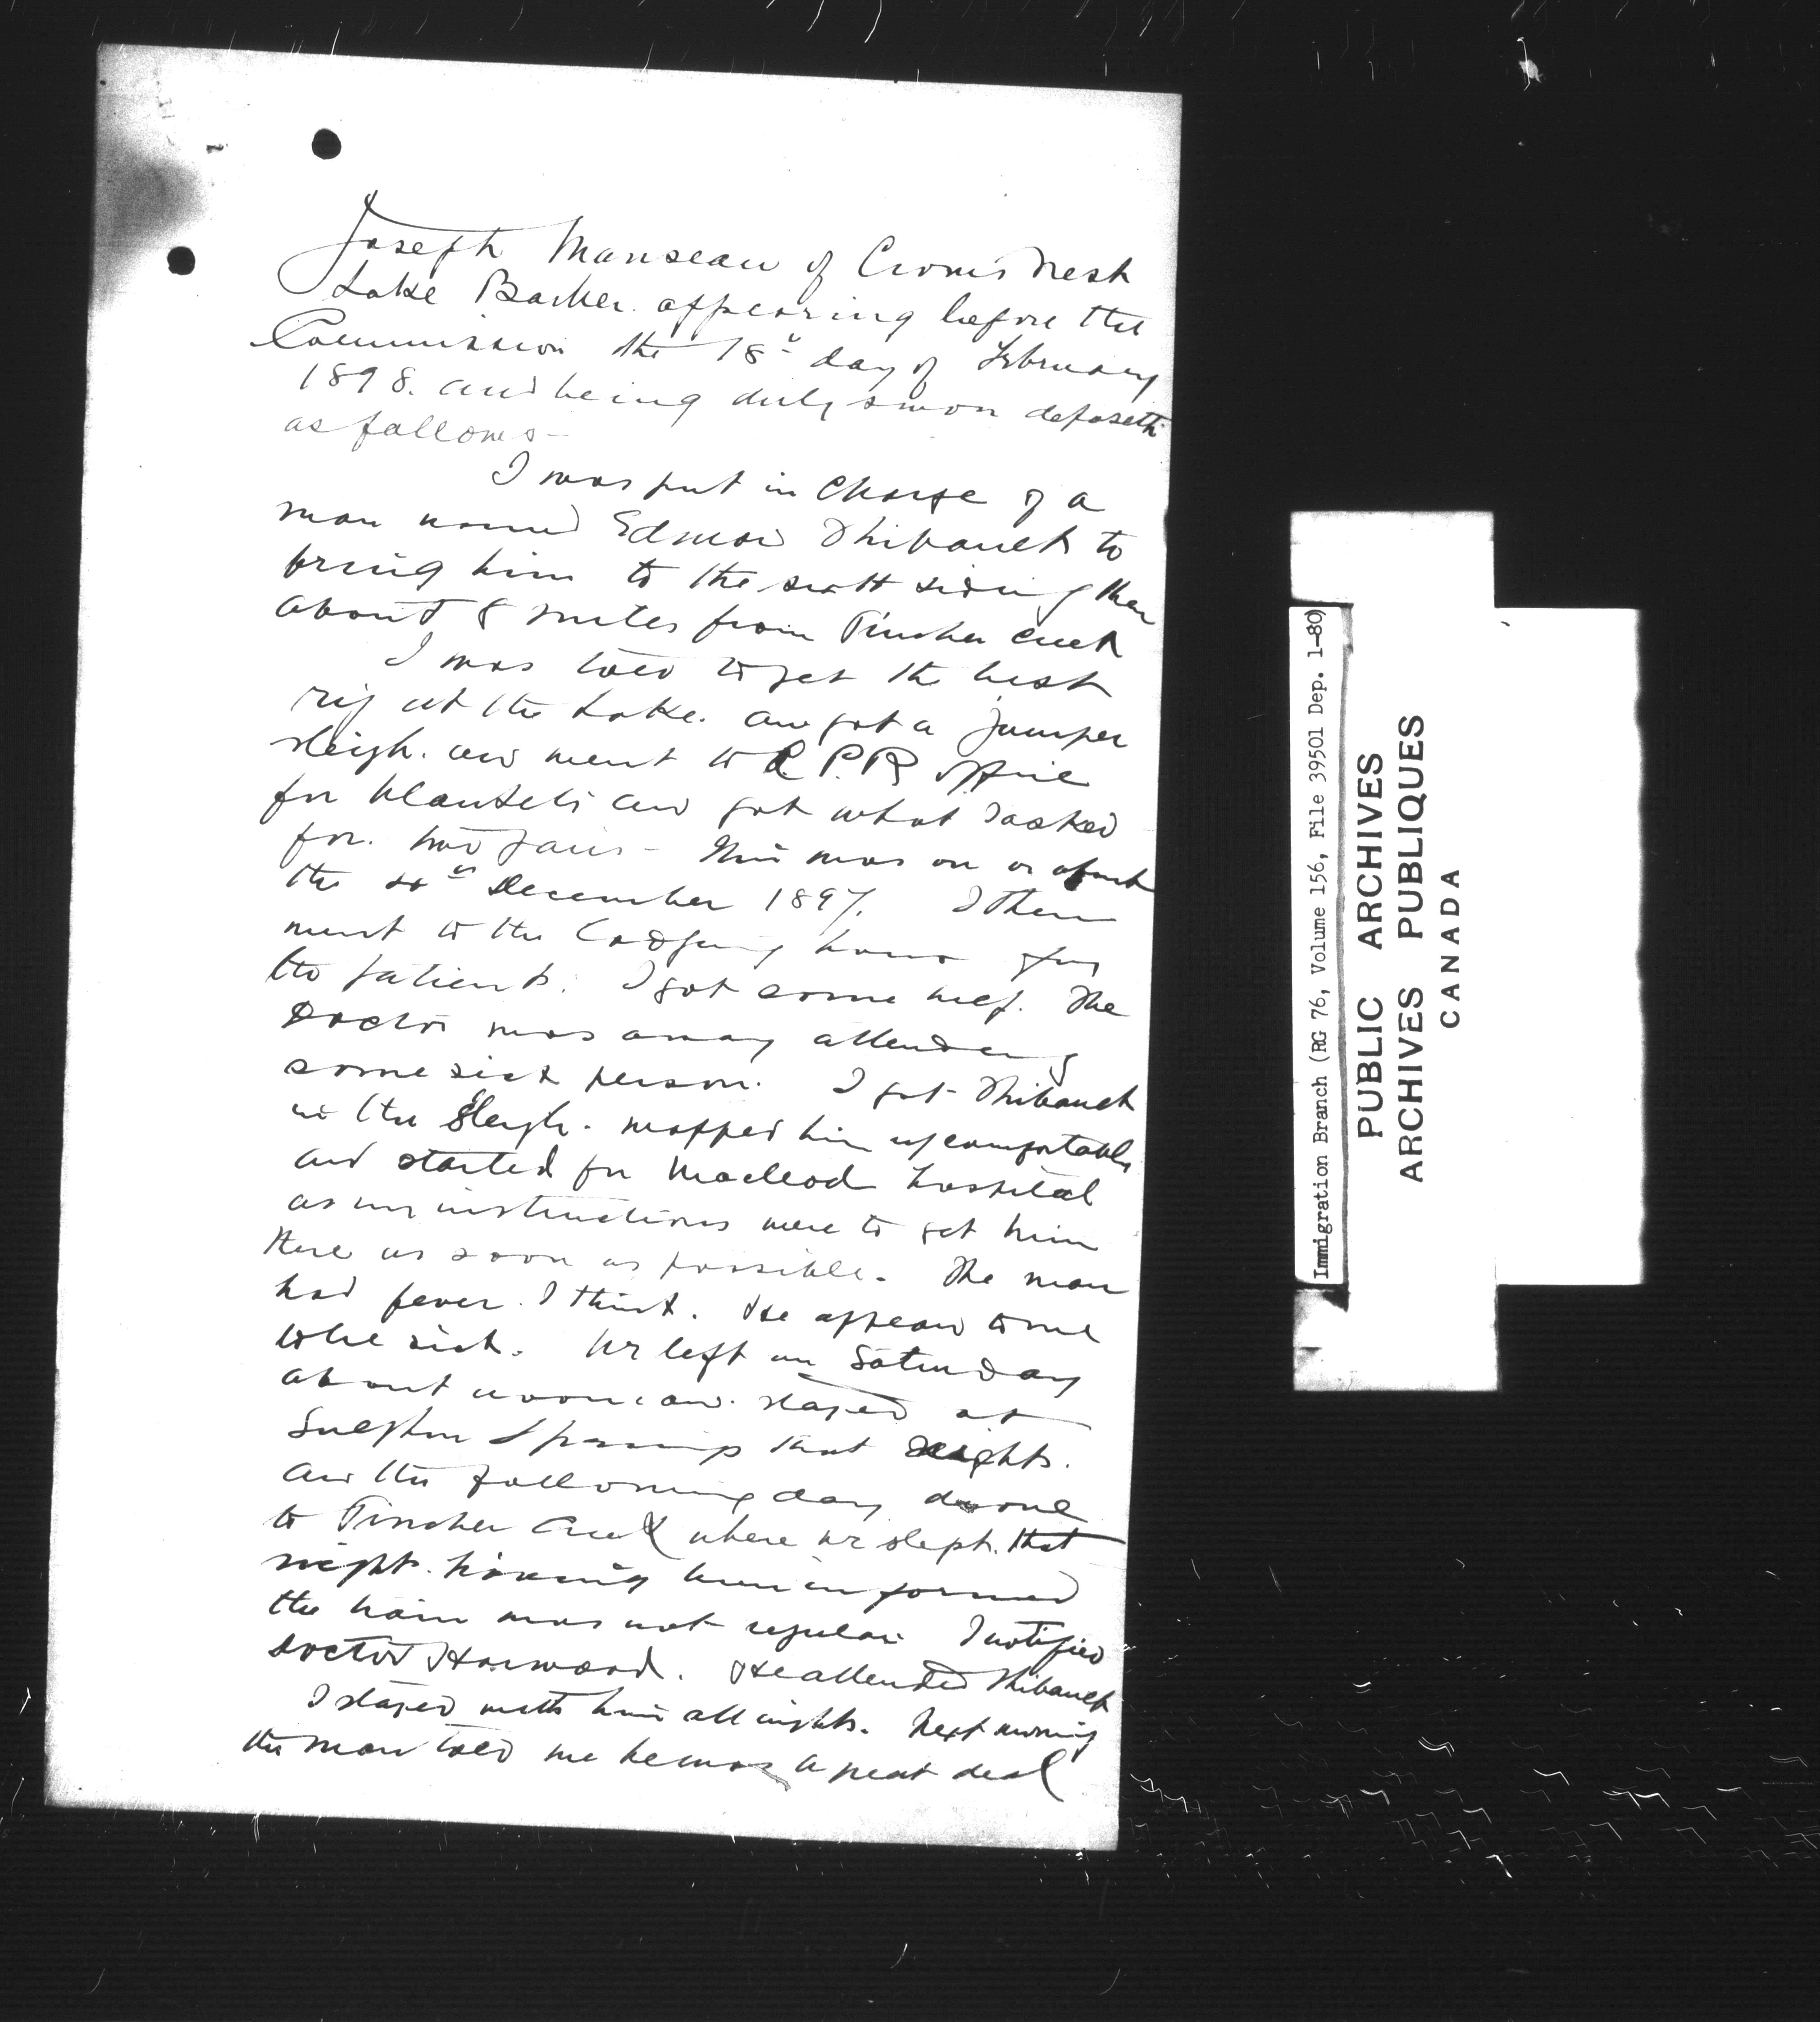 Joseph Manseau of Crow's Nest
Lake Barber. appearing before the
Commission the 18th day of February
1898. and being duly sworn deposeth
as follows—
I was put in charge of a
man named Edmond Thibault to
bring him to the siding then
about 8 miles from Pincher Creek
I was told to get the best
rig at the Lake. and got a jumper
sleigh. and went to C.P.R office
for blankets and got what I asked
for. two pairs— This was on or about
the December 1897. I then
went to the Lodging house for
the patients. I got some help. The
Doctor was away attending
some sick person. I got Thibault
in the Sleigh. wrapped him up comfortably
and started for Macleod hospital
as my instructions were to get him
there as soon as possible. The man
had fever I think. He appeared to me
to be sick. We left on Saturday
about noon and stayed at
Sulphur Springs that night.
and the following day drove
to Pincher Creek where we slept that
night. having been informed
the train was not regular I notified
Doctor Harwood. He attended Thibault
I stayed with him all night. Next morning
the man told me he was a great deal
Immigration Branch (RG 76, Volume 156, File 39501 Dep. 1-80)
PUBLIC ARCHIVES
ARCHIVES PUBLIQUES
CANADA